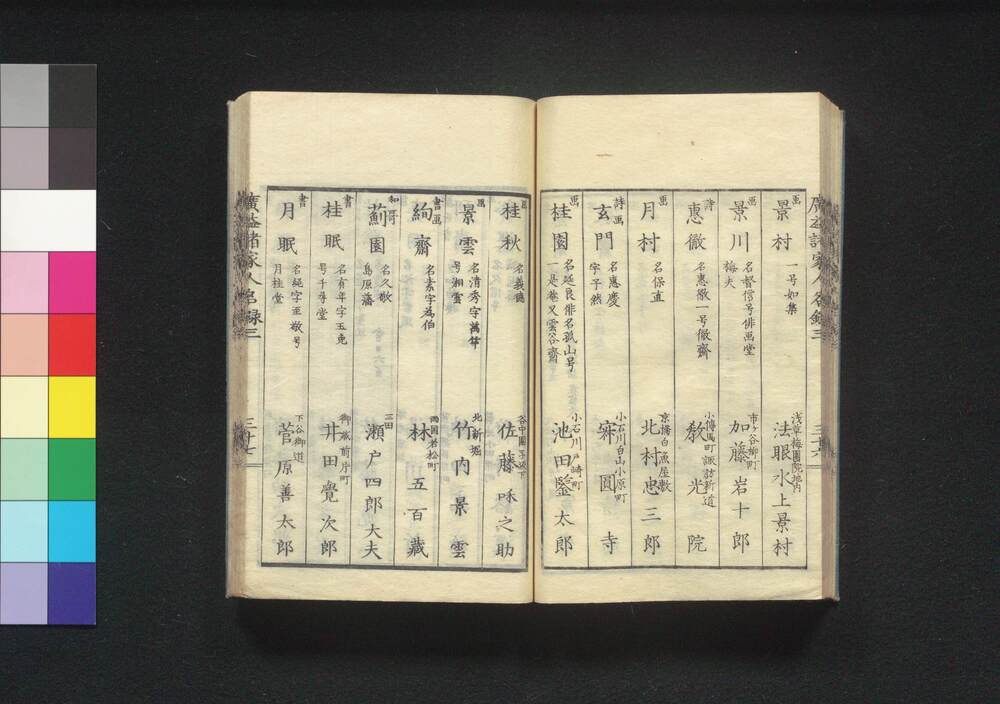 廣益諸家人名録三
三十六
画
景村
一号如集
浅草梅園院地内
法眼水上景村
画
景川
名督信号俳画堂
梅夫
市ヶ谷柳町
加藤岩十郎
詩
惠徹
名惠徹一号徹齋
小傳馬町諏訪新道
教光院
画
月村
名保直
京橋白魚屋敷
北村忠三郎
詩画
玄門
名惠慶
字子然
小石川白山小原町
寂圓寺
画
桂園
名延良俳名孤山号
一是巷又雲谷齋
小石川戸崎町
池田鑒太郎
画
桂秋
名義德
谷中團子坂下
佐藤味之助
画
景雲
名清秀字萬年
号湘雲
北新堀
竹内景雲
書画
絢齋
名素字為伯
両国若松町
林五百藏
和哥
薊園
名久敬
島原藩
三田
瀬戸四郎大夫
書
桂眠
名有年字玉兎
号千尋堂
御蔵前片町
井田覺次郎
書
月眠
名延字正敬号
月桂堂
下谷御道
菅原善太郎
廣益諸家人名録三
三十七